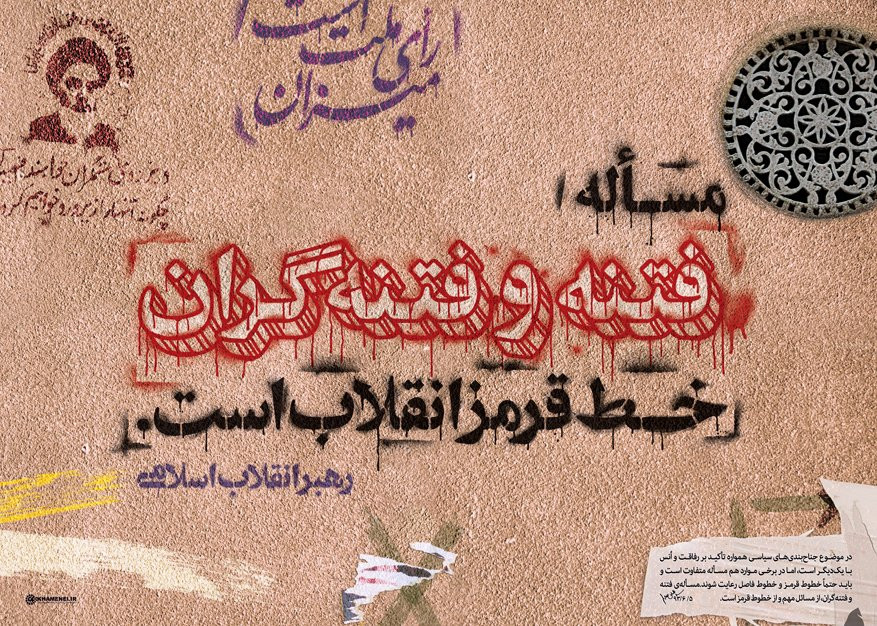 میزان
رأی ملت
است
مسأله
فتنه و فتنه‌گران
خط قرمز انقلاب است.
رهبر انقلاب اسلامی
در موضوع جناح‌بندی‌های سیاسی همواره تأکید بر رفاقت و اُنس
با یکدیگر است، اما در برخی موارد هم مسأله متفاوت است و
باید حتماً خطوط قرمز و خطوط فاصل رعایت شوند. مسأله‌ی فتنه
و فتنه‌گران، از مسائل مهم و از خطوط قرمز است. ۹۳/۶/۵
KHAMENEI.IR